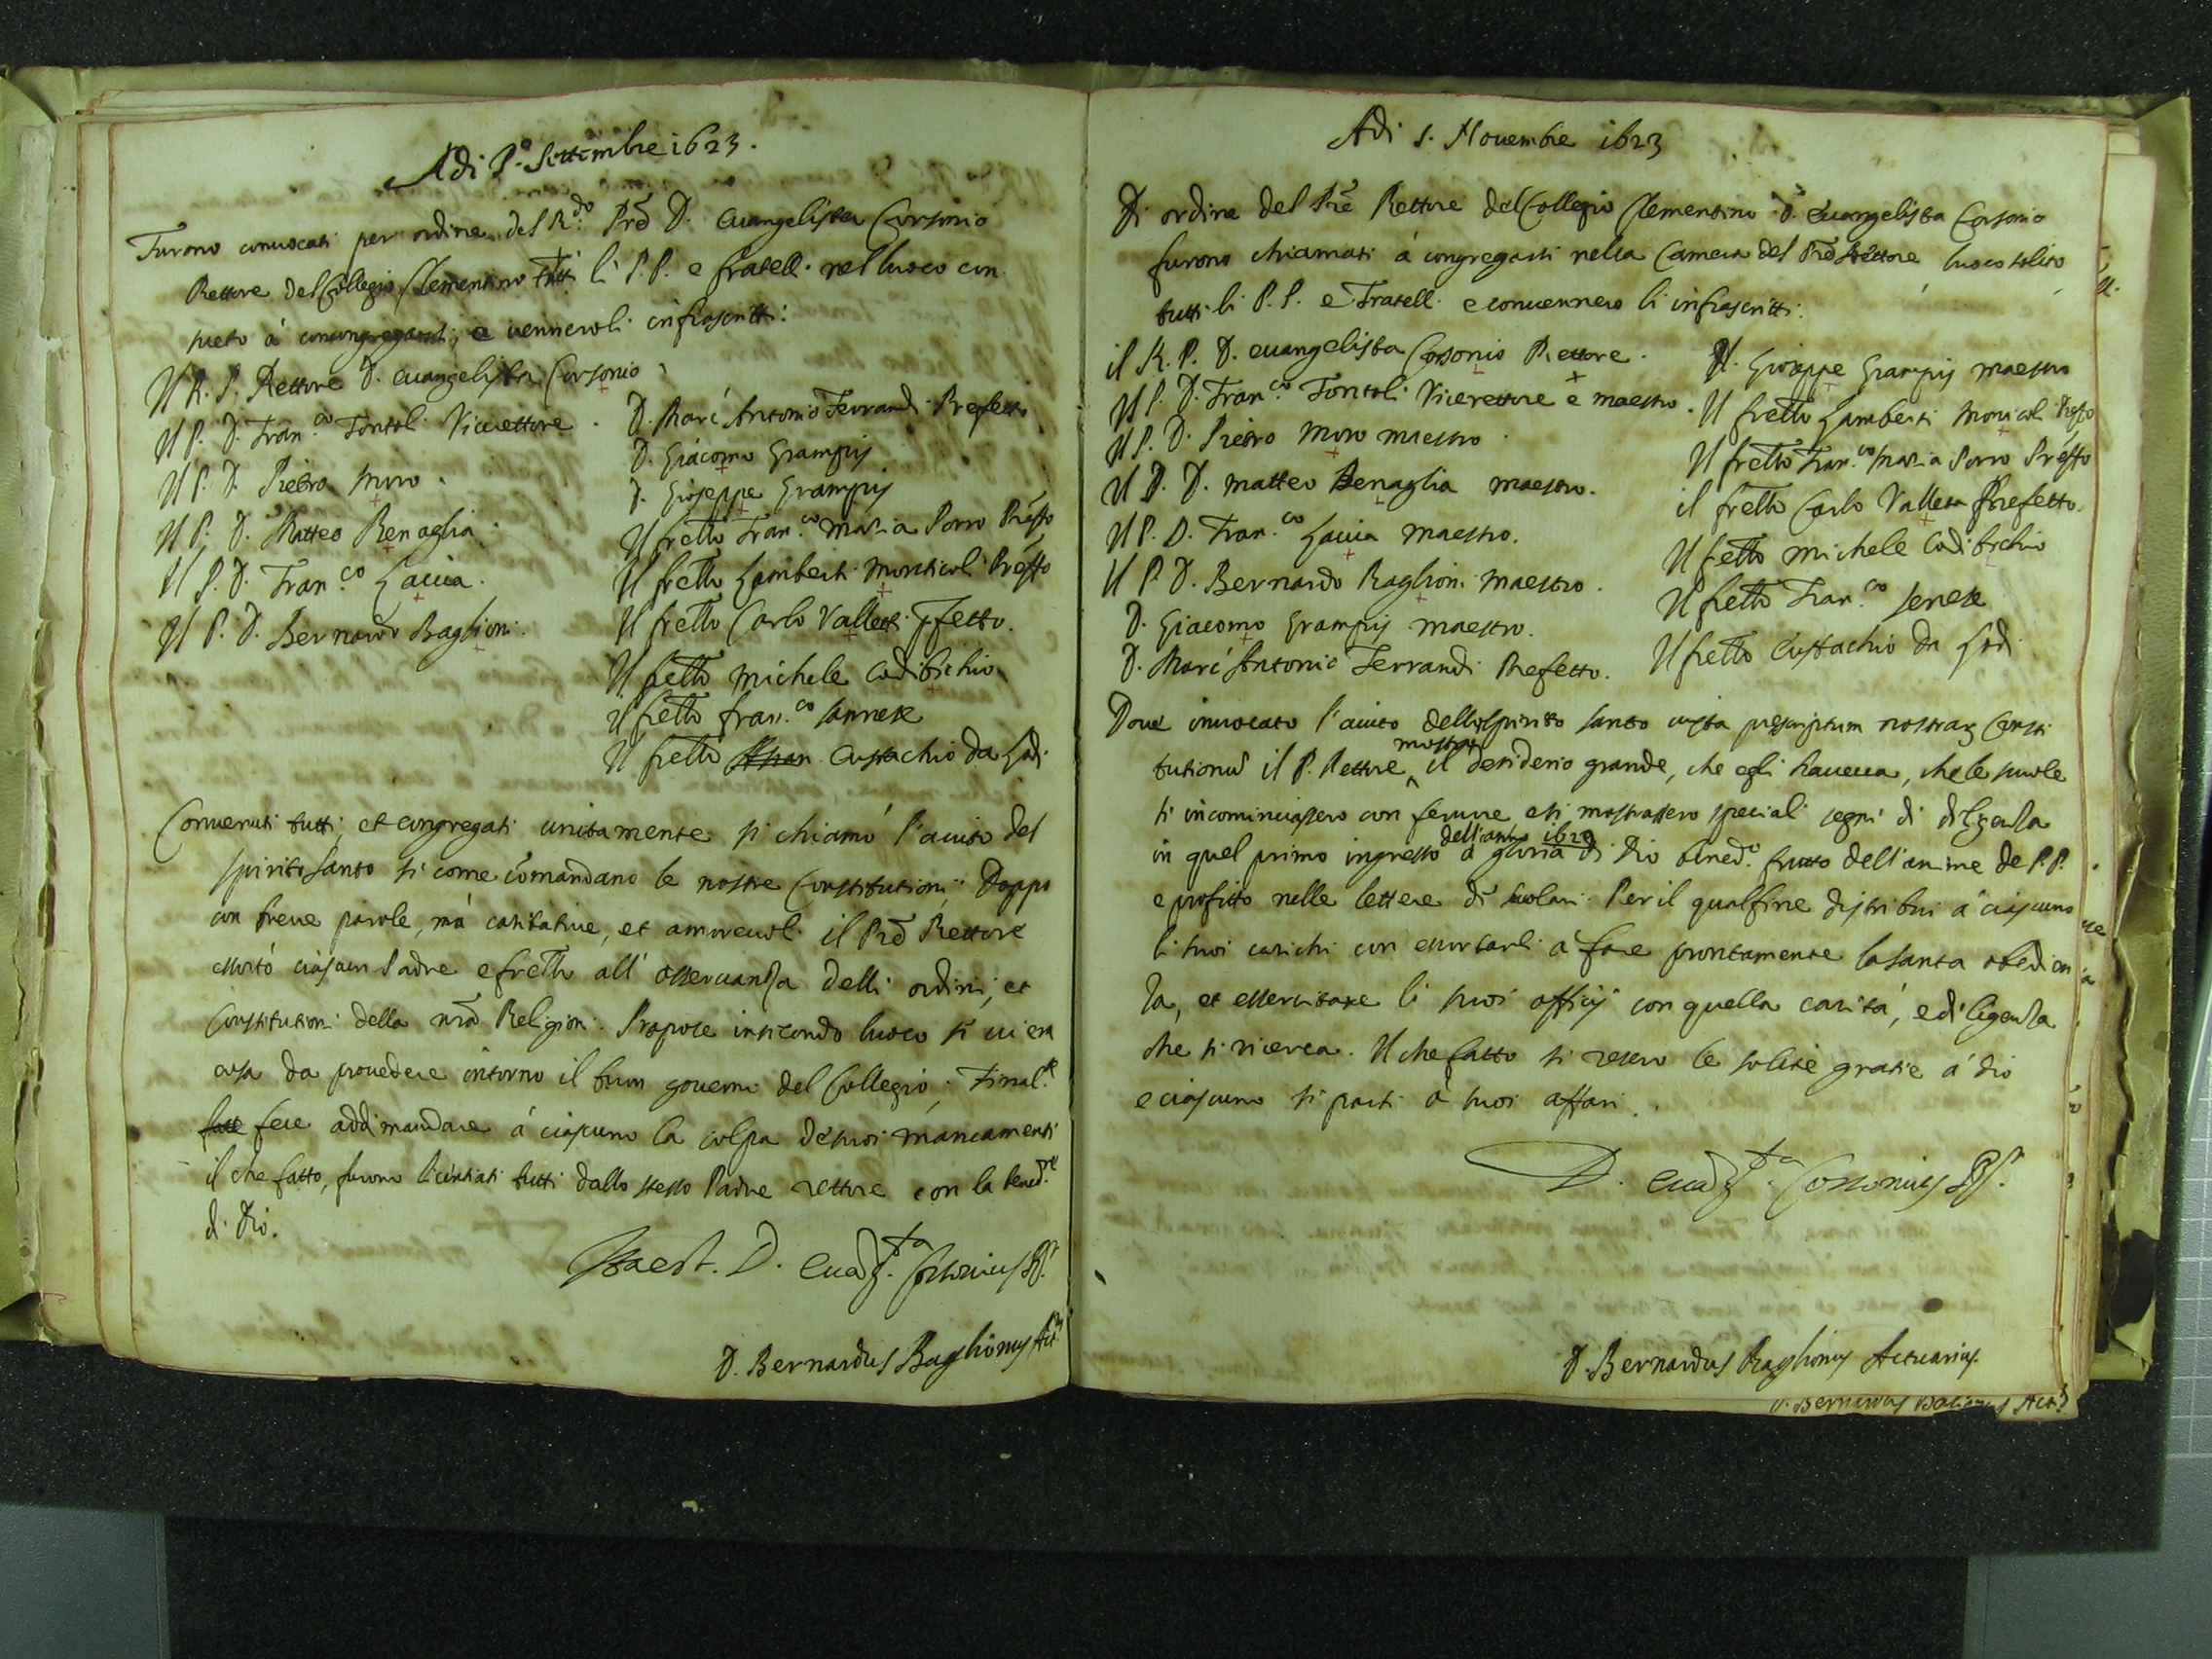 Adi P.º Settembre 1623.
Furono conuocati per ordine del R.do Prē D. Euangelista Corsonio
Rettore del Collegio Clementino tutti li P.P. e fratelli nel luoco con
sueto á congregarsi, e uenneroli infrascritti:
Il R. P. Rettore D. euangelista Corsonio
Il P. D. Fran.co Fontoli Vicerettore.
Il P. D. Pietro Moro.
Il P. D. Matteo Benaglia.
Il P. D. Fran.co Laccia.
Il P. D. Bernardo Baglioni.
D. Marc'Antonio Ferrandi Prefetto
D. Giacomo Grampis
D. Gioseppe Grampis
Il frello Fran.co Maria Porro Preffo
Il frello Lamberti Monticoli Preffo
Il frello Carlo Valletta Pfetto.
Il frello Michele Codibichio
Il frello fran.co
Il frello Eustachio da Lodi
Conuenuti tutti, et congregati unitamente si chiamó l'aiuto del
spirito santo si come comandano le nostre Constitutioni. Doppo
con breue parole, má caritatiue, et amoreuoli il Prē Rettore
essortó ciascun Padre e frello all'osseruanza delli ordini, et
Constitutioni della nrā Religioni. Propose insecondo luoco si ui era
cosa da prouedere intorno il buon gouerno del Collegio. Final.te
fece addimandare á ciascuno la colpa de suoi mancamenti
il che fatto, furono licentiati tutti dallo stesso Padre rettore con la bened.ne
di Dio.
D. Euāg.ta Corsonius
D. Bernardus Baglionus Act.s
Adi 5. Nouembre 1623
Di ordine del Prē Rettore del Collegio Clementino D. Euangelista Corsonio
furono chiamati á congregarsi nella Camera del Prē Rettore luoco solito
tutti li P.P. e Fratelli e conuennero li infrascritti:
il R. P. D. euangelista Corsonio Rettore.
Il P. D. Fran.co Fontoli Vicerettore e maestro.
Il P. D. Pietro Moro maestro.
Il P. D. Matteo Benaglia maestro.
Il P. D. Fran.co Laccia maestro.
Il P. D. Bernardo Baglioni maestro.
D. Giacomo Grampis maestro.
D. Marc'Antonio Ferrandi Prefetto.
D. Gioseppe Grampis maestro
Il frello Lamberti Monticoli
Il frello Fran.co Maria Porro Preffo
il frello Carlo Valletta Prefetto.
Il frello Michele Codibichio
Il frello Fran.co
Il frello Eustachio da Lodi
Doue inuocato l'aiuto dello Spirito santo iuxta prescriptum nostraɿ Consti
tutionū il P. Rettore mostró il desiderio grande, che egli haueua, che le scuole
si incominciassero con feruore, e si mostrassero speciali segni di diligenza
in quel primo ingresso dell'anno á gloria di Dio bened.o frutto dell'anime de P.P.
e profitto nelle lettere di scolari. Per il qualfine distribui á ciascuno
li suoi carichi con essortarli á fare prontamente la santa obedien
za, et essercitare li suoi officij con quella caritá, e diligenza
che si ricerca. Il che fatto si resero le solite gratie á Dio
e ciascuno si parti á suoi affari.
D. Euāg.ta Corsonius
D. Bernardus Baglionus Actuarius.
D. Bernardus Baglionus Act.s